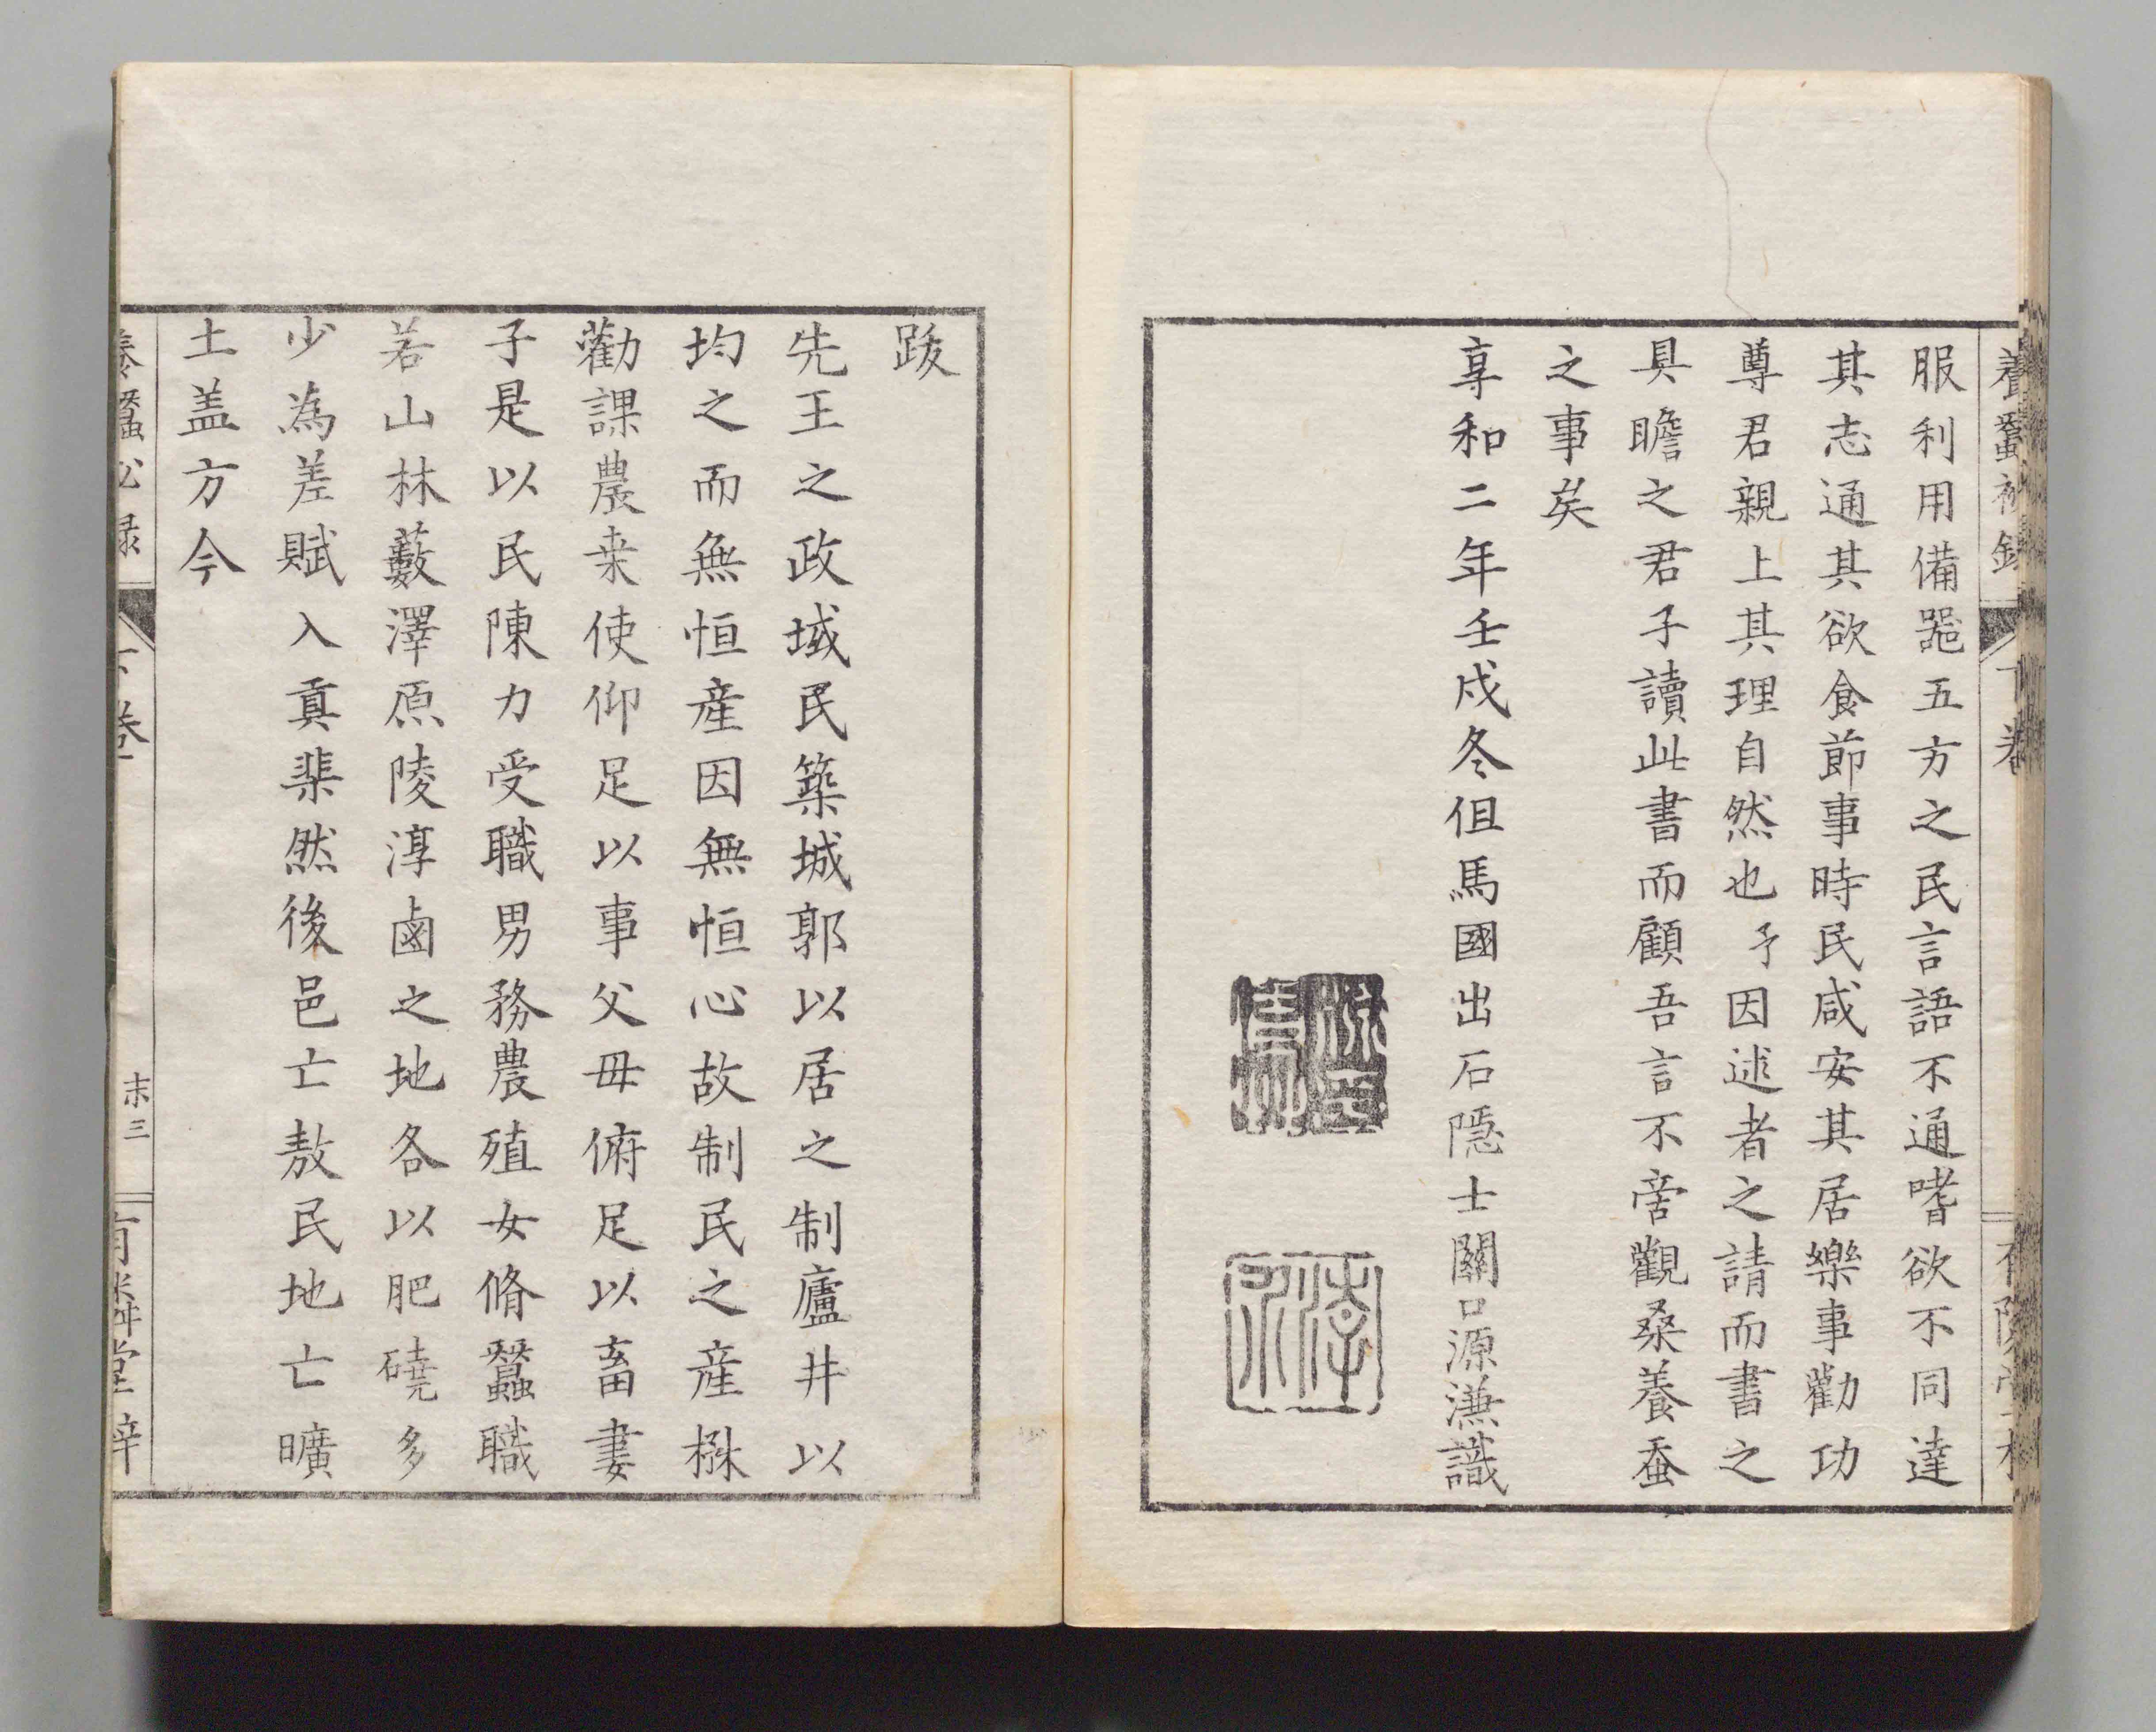 養蚕秘録
下巻
服利用備器五方之民言語不通嗜欲不同達
其志通其欲食節事時民咸安其居樂事勸功
尊君親上其理自然也予因述者之請而書之
具瞻之君子讀此書而顧吾言不啻觀桑養蚕
之事矣
享和二年壬戌冬但馬國出石隠士關口源濂識
跋
先王之政域民築城郭以居之制廬井以
均之而無恒産因無恒心故制民之産槑
勸課農桒使仰足以事父母俯足以畜妻
子是以民陳力受職男務農殖女脩蠶職
若山林藪澤原陵淳鹵之地各以肥磽多
少為差賦入貢棐然後邑亡敖民地亡曠
土盖方今
養蠶秘録
下巻
末三